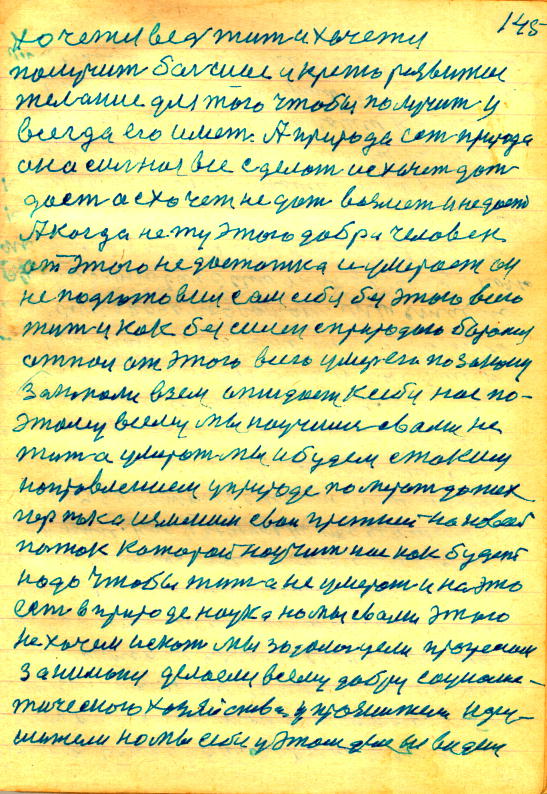 145
хочем и вед жит и хочем
получит болшие и крепко развитие
желание для того чтобы получит и
всегда его имет. А природа ест природа
она силная все сделат и схочет дат
даст а схочет не дат возмет и не даст
А когда нету этого добра человек
от этого недостатка и умерает он
не подготовил сам себя без этого всего
жит и как без силен с природою боролся
отпол от этого всего умер его по закону
закопали взем ожидает к себи нас по-
этому всему мы научилис вами не
жит а умерат мы и будем с таким
направлением у природе помират до тех
пор пока изменим свой прежний на новый
поток каторай научит нас как будет
надо чтобы жит а не умерат и на это
ест в природе наука но мы свами этого
не хочем искат мы
занимаем делаем всему добру социалис-
тического хозяйства у промишлени
но мы себи у этом деле не видем